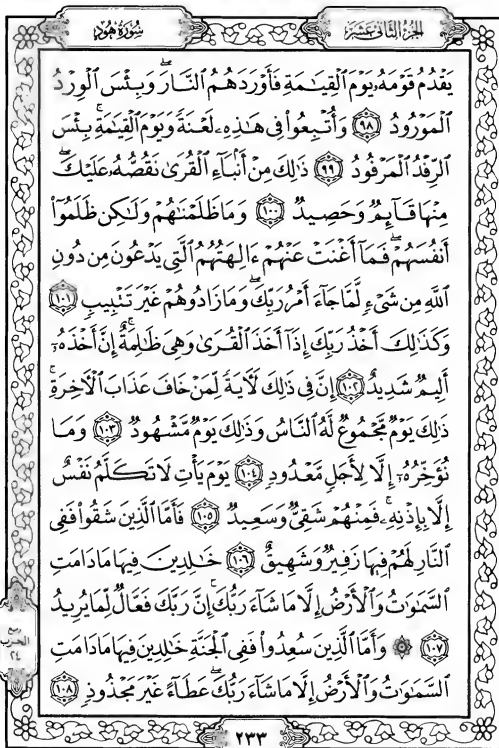 سُورَةُ هُودٍ
الجزء الثاني عشر
يَقْدُمُ قَوْمَهُۥ يَوْمَ ٱلْقِيَٰمَةِ فَأَوْرَدَهُمُ ٱلنَّارَ ۖ وَبِئْسَ ٱلْوِرْدُ
ٱلْمَوْرُودُ ٩٨ وَأُتْبِعُوا۟ فِى هَٰذِهِۦ لَعْنَةً وَيَوْمَ ٱلْقِيَٰمَةِ ۚ بِئْسَ
ٱلرِّفْدُ ٱلْمَرْفُودُ ٩٩ ذَٰلِكَ مِنْ أَنۢبَآءِ ٱلْقُرَىٰ نَقُصُّهُۥ عَلَيْكَ ۖ
مِنْهَا قَآئِمٌ وَحَصِيدٌ ١٠٠ وَمَا ظَلَمْنَٰهُمْ وَلَٰكِن ظَلَمُوٓا۟
أَنفُسَهُمْ ۖ فَمَآ أَغْنَتْ عَنْهُمْ ءَالِهَتُهُمُ ٱلَّتِى يَدْعُونَ مِن دُونِ
ٱللَّهِ مِن شَىْءٍ لَّمَّا جَآءَ أَمْرُ رَبِّكَ ۖ وَمَا زَادُوهُمْ غَيْرَ تَتْبِيبٍ ١٠١
وَكَذَٰلِكَ أَخْذُ رَبِّكَ إِذَآ أَخَذَ ٱلْقُرَىٰ وَهِىَ ظَٰلِمَةٌ ۚ إِنَّ أَخْذَهُۥٓ
أَلِيمٌ شَدِيدٌ ١٠٢ إِنَّ فِى ذَٰلِكَ لَءَايَةً لِّمَنْ خَافَ عَذَابَ ٱلْءَاخِرَةِ ۚ
ذَٰلِكَ يَوْمٌ مَّجْمُوعٌ لَّهُ ٱلنَّاسُ وَذَٰلِكَ يَوْمٌ مَّشْهُودٌ ١٠٣ وَمَا
نُؤَخِّرُهُۥٓ إِلَّا لِأَجَلٍ مَّعْدُودٍ ١٠٤ يَوْمَ يَأْتِ لَا تَكَلَّمُ نَفْسٌ
إِلَّا بِإِذْنِهِۦ ۚ فَمِنْهُمْ شَقِىٌّ وَسَعِيدٌ ١٠٥ فَأَمَّا ٱلَّذِينَ شَقُوا۟ فَفِى
ٱلنَّارِ لَهُمْ فِيهَا زَفِيرٌ وَشَهِيقٌ ١٠٦ خَٰلِدِينَ فِيهَا مَا دَامَتِ
ٱلسَّمَٰوَٰتُ وَٱلْأَرْضُ إِلَّا مَا شَآءَ رَبُّكَ ۚ إِنَّ رَبَّكَ فَعَّالٌ لِّمَا يُرِيدُ
١٠٧ ۞ وَأَمَّا ٱلَّذِينَ سُعِدُوا۟ فَفِى ٱلْجَنَّةِ خَٰلِدِينَ فِيهَا مَا دَامَتِ
ٱلسَّمَٰوَٰتُ وَٱلْأَرْضُ إِلَّا مَا شَآءَ رَبُّكَ ۖ عَطَآءً غَيْرَ مَجْذُوذٍ ١٠٨
٢٣٣